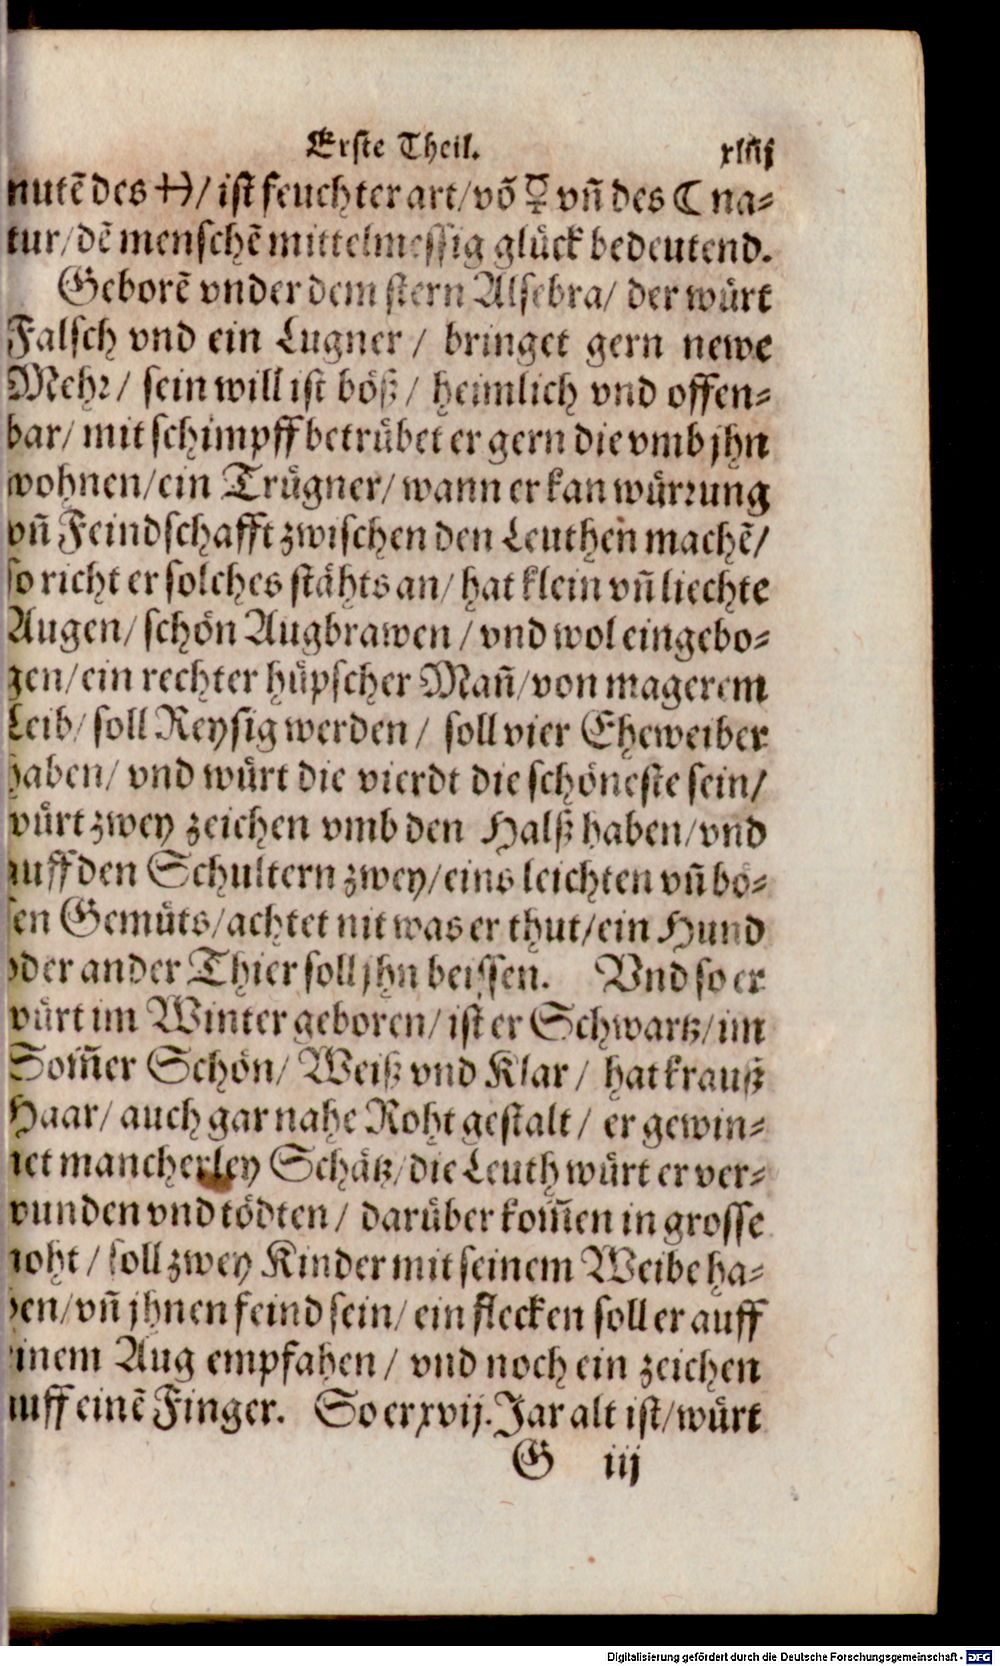 Erste Theil. xliij
nutẽ des ♓/ ist feuchter art/ võ ♀ vñ des ☾ na⸗
tur/ dẽ menschẽ mittelmessig glück bedeutend.
Geborẽ vnder dem stern Alsebra/ der würt
Falsch vnd ein Lugner/ bringet gern newe
Mehr/ sein will ist böß/ heimlich vnd offen⸗
bar/ mit schimpff betrübet er gern die vmb jhn
wohnen/ ein Trügner/ wann er kan würrung
vñ Feindschafft zwischen den Leuthen machẽ/
so richt er solches stähts an/ hat klein vñ liechte
Augen/ schön Augbrawen/ vnd wol eingebo⸗
gen/ ein rechter hüpscher Mañ/ von magerem
Leib/ soll Reysig werden/ soll vier Eheweiber
haben/ vnd würt die vierdt die schöneste sein/
würt zwey zeichen vmb den Halß haben/ vnd
auff den Schultern zwey/ eins leichten vñ bö⸗
sen Gemüts/ achtet nit was er thut/ ein Hund
oder ander Thier soll jhn beissen. Vnd so er
würt im Winter geboren/ ist er Schwartz/ im
Som̃er Schön/ Weiß vnd Klar/ hat krauß
Haar/ auch gar nahe Roht gestalt/ er gewin⸗
net mancherley Schätz/ die Leuth würt er ver⸗
wunden vnd tödten/ darüber kom̃en in grosse
noht/ soll zwey Kinder mit seinem Weibe ha⸗
ben/ vñ jhnen feind sein/ ein flecken soll er auff
einem Aug empfahen/ vnd noch ein zeichen
auff einẽ Finger. So er xvij. Jar alt ist/ würt
G iij
Digitalisierung gefördert durch die Deutsche Forschungsgemeinschaft - DFG